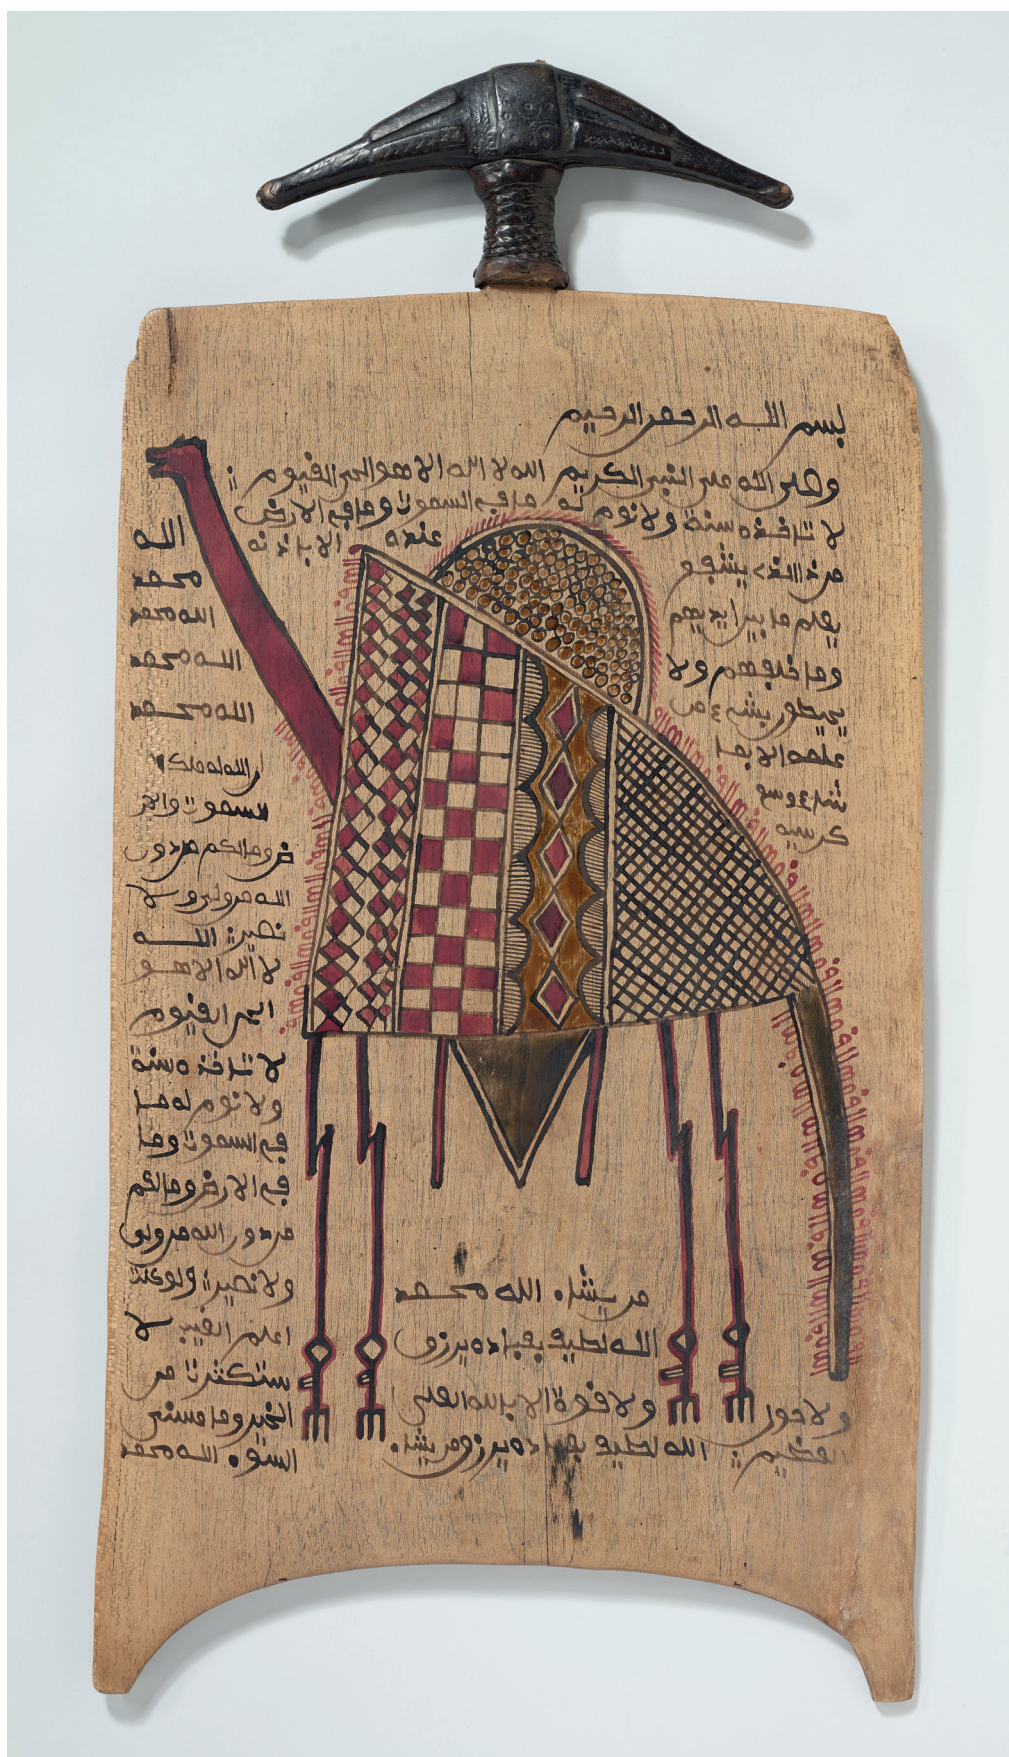 بسم الله الرحمن الرحيم
وصلى الله على النبي الكريم الله لا اله الا هو الحي القيوم
لا تاخذه سنة ولا نوم له ما في السموت وما في الارض
من ذا الذي يشفع عنده الا باذنه
يعلم ما بين ايديهم
وما خلفهم ولا
يحيطون بشيء من
علمه الا بما
شاء وسع
كرسيه
الله
محمد
الله محمد
الله محمد
الله محمد
ان الله له ملك
السموت والار
ض وما لكم من دون
الله من ولي ولا
نصير الله
لا اله الا هو
الحي القيوم
لا تاخذه سنة
ولا نوم له ما
في السموت وما
في الارض وما لكم
من دون الله من ولي
ولا نصير ولو كنت
اعلم الغيب لا
ستكثرت من
الخير وما مسني
السوء الله محمد
من يشاء الله محمد
الله لطيف بعباده يرزق
ولا حول ولا قوة الا بالله العلي
العظيم الله لطيف بعباده يرزق من يشاء